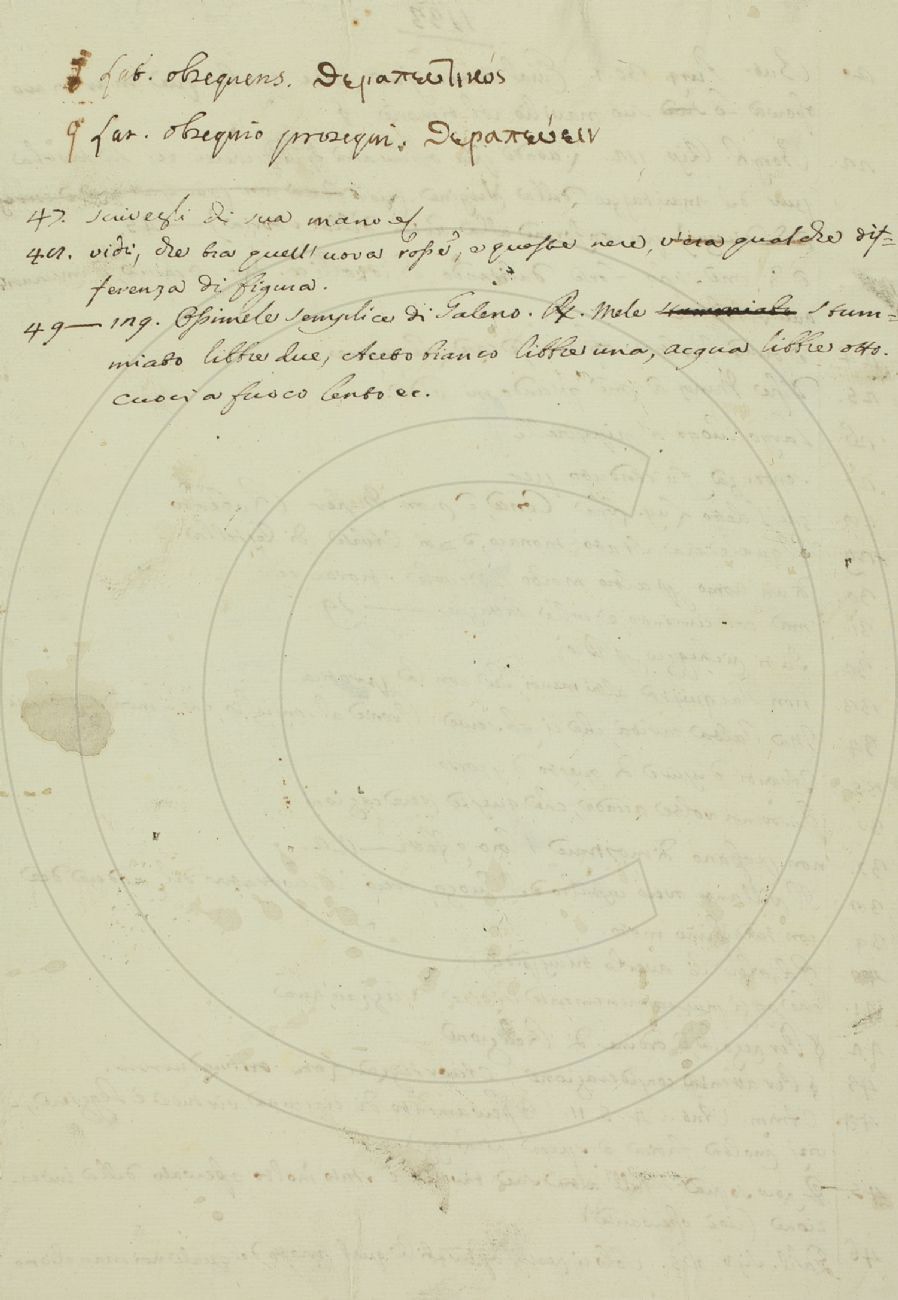 lat. obsequens. θεραπευτικός
9 lat. obsequio prosequi. θεραπεύειν
47. scivegli di sua mano
48. vidi, che tra quell' uova rosse, e queste nere, v'era qualche dif=
ferenza di figura.
49— ing. Ossimele semplice di Galeno. ℞. Mele stum=
miato libbre due, Aceto bianco libbre una, acqua libbre otto.
cuoci a fuoco lento ec.